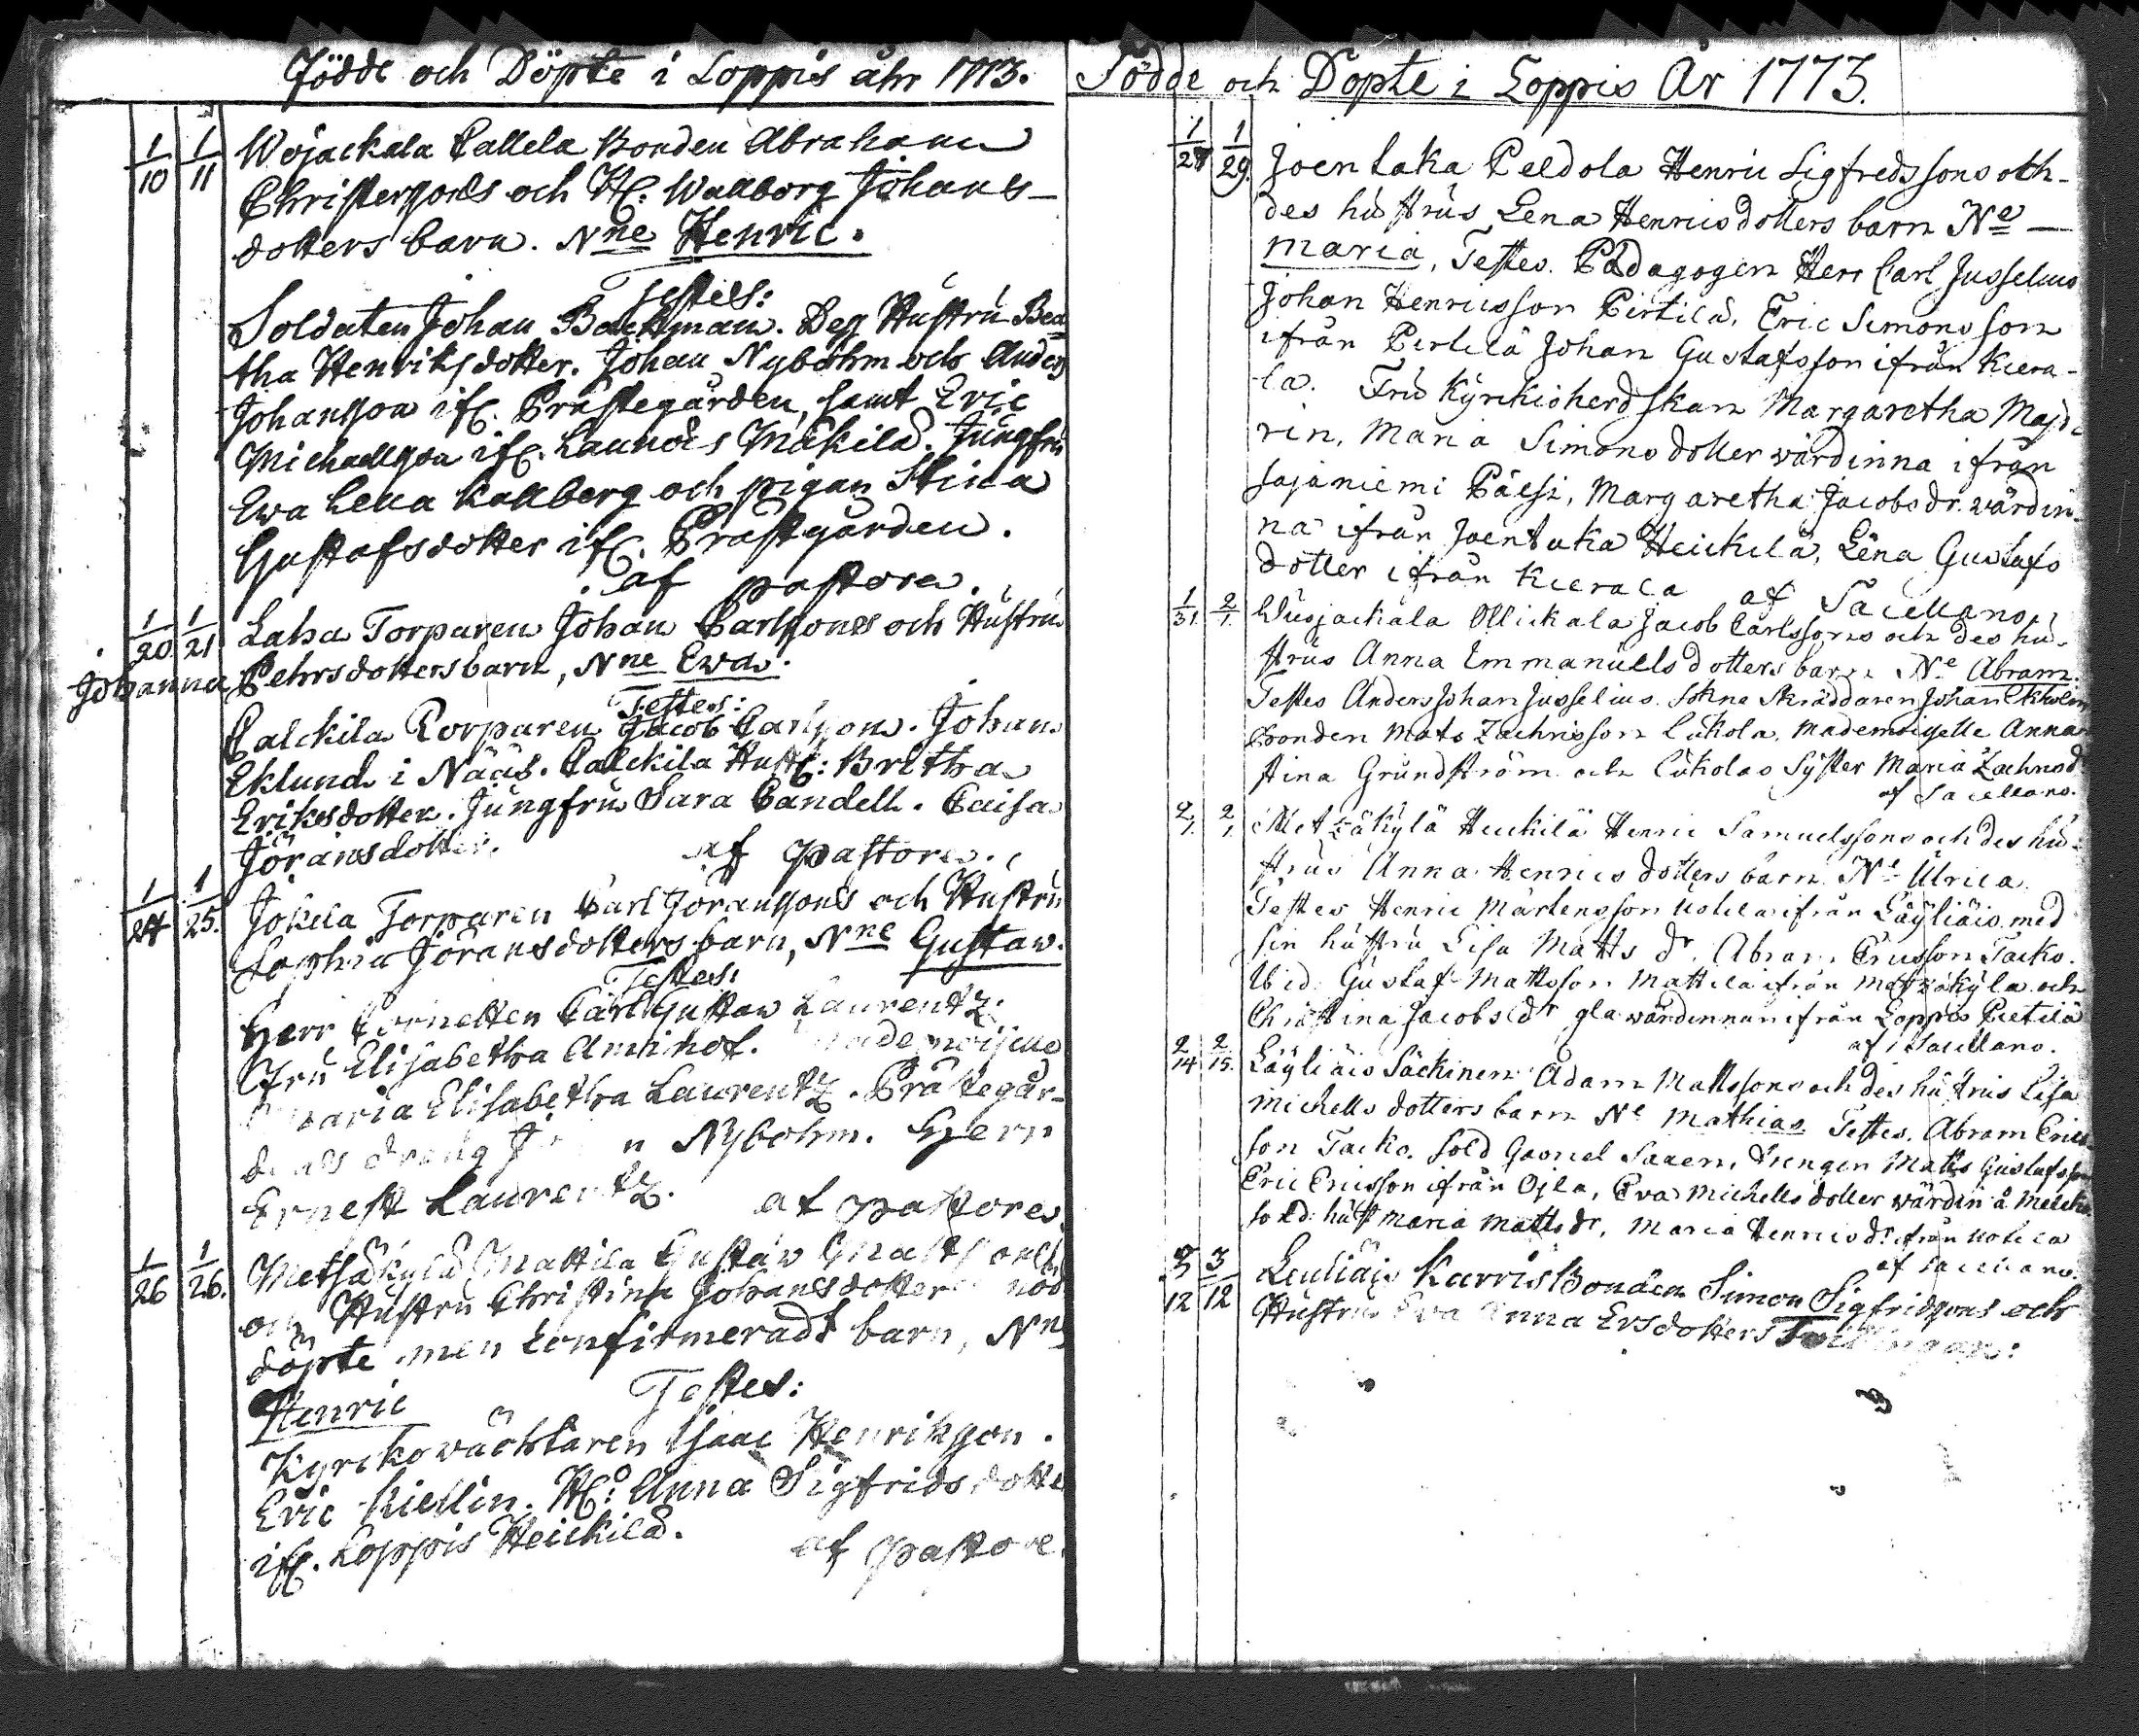 Födde och Döpte i Loppis åhr 1773.
1/10 1/11 Wojackala Pallela Bonden Abraham
Christerssons och H: Wallborg Johans-
dotters barn. Nne Henric.
Testes:
Soldaten Johan Backman. Dess Hustru Bea
tha Henriksdotter. Johan Nybohm och Anders
Johansson if: Prästegården, samt Eric
Michaellsson if: Launois Mäkilä. Jungfru
Ewa Lena Kallberg och pigan Stina
Gustafsdotter if: Prästgården.
af pastore.
1/20 1/21 Laha Torparen Johan Carlssons och Hustru
Johanna Pehrsdotters barn, Nne Ewa.
Testes:
Palckila Torparen Jacob Carlsson. Johan
Eklund i Nääs. Palckila Hust: Britha
Eriksdotter. Jungfru Sara Candell. Caisa
Jöransdotter. af pastore.
1/24 1/25. Jokela Torparen Carl Jöranssons och Hustru
Sophia Jöransdotters barn, Nne Gustaw.
Testes:
Herr Cornetten Carl Gustaw Laurentz.
Fru Elisabetha Aminhof.
Maria Elisabetha Laurentz. Prästegår-
dräng Nybohm. Herr
Ernest Laurentz. af pastore.
1/26 1/26. Metsäkylä Mattila Gustaw
och Hustru Christina Johansdotters nöd
döpte men confirmeradt barn, Nne
Henric Testes:
Kyrckowächtaren Isaac Henriksson.
Eric Kiellin. H: Anna Sigfridsdotte
if: Loppis Heickilä. af pastore.
Födde och Döpte i Loppis År 1773.
1/28 1/29. Joentaka Peldola Henric Sigfredssons och
des hustrus Lena Henricsdotters barn Ne
Maria, Testes. Pädagogen Herr Carl Jusselius
Johan Henricsson Pirtilä, Eric Simonsson
ifrån Pertilä Johan Gustafsson ifrån Kiera-
la. Fru Kyrckioherdskan Margaretha
Maria Simonsdotter wärdinna ifrån
Sajaniemi Pälsi, Margaretha Jacobsdr. wärdin
na ifrån Joentaka Heickilä, Lena Gustafs
dotter ifrån Kierala af Sacellano.
1/31. 2/1. Wusjackala Ollickala Jacob Carlssons och des hu-
strus Anna Immanuellsdotters barn Ne Abram.
Testes Anders Johan Jusselius. Sokne Skräddaren Johan Ekholm
Bonden Mats Zachrisson Cukola, Mademoiselle Anna
stina Grundström och Cukolas Syster Maria Zachrisd
af Sacellano.
2/1. 2/1. Metzäkylä Heickilä Henric Samuelssons och des hu-
strus Anna Henricsdotters barn Ne Ulrica.
Testes Henric Mårtensson Uotila ifrån Läyliäis med
sin hustru Lisa Matts dr. Abram Ericsson Tacko.
Gustaf Mattsson Mattila ifrån Metzäkylä och
Christina Jacobsdr gla wärdinnan ifrån Loppis Pietilä
af Sacellano.
2/14 2/15. Läyliäis Säckinen Adam Mattssons och des hustrus Lisa
Michellsdotters barn Ne Mathias. Testes, Abram Erics
son Tacko. Sold Gabriel Saxen, Drengen Matts Gustafsson
Eric Ericsson ifrån Ojla, Eva Michellsdotter wärdin å
Sold: hust Maria Matts dr, Maria Henricsdr ifrån Uotila
af Sacellano.
3/12 3/12 Leuliäis Karris Bonden Simon Sigfridssons och
Hustru Eva Anna Ersdotters Twillingar: